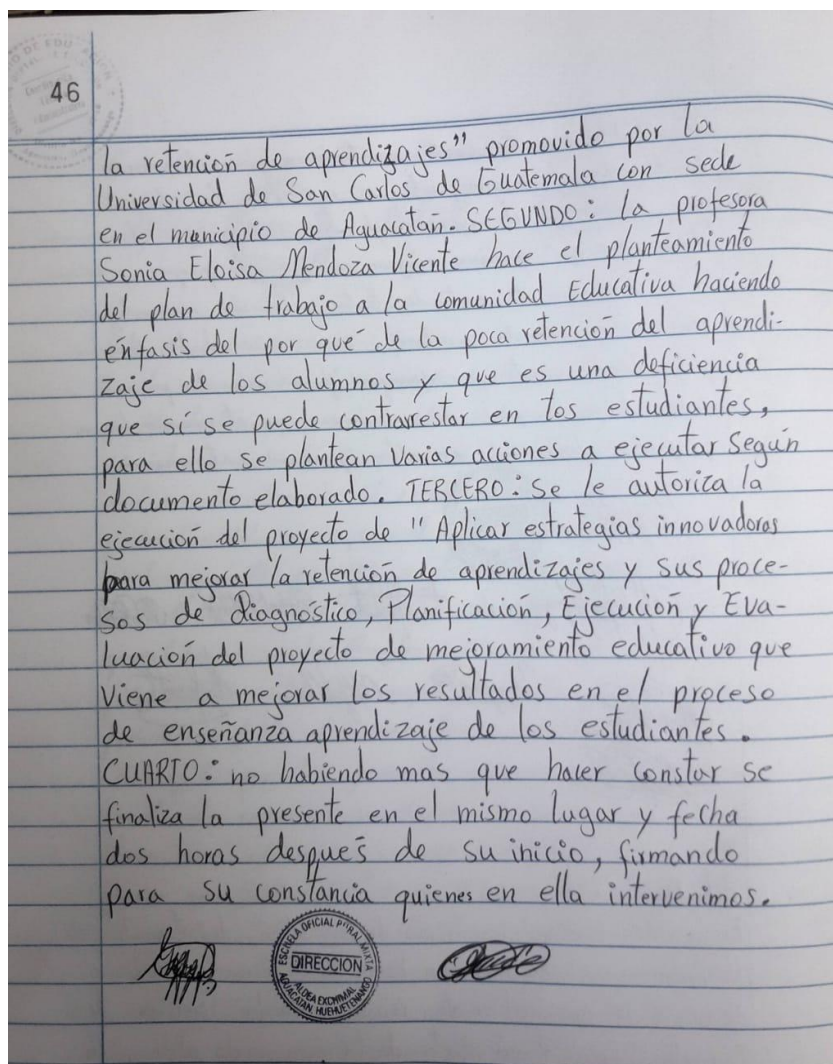 46
la retención de aprendizajes" promovido por la
Universidad de San Carlos de Guatemala con sede
en el municipio de Aguacatán. SEGUNDO: la profesora
Sonia Eloisa Mendoza Vicente hace el planteamiento
del plan de trabajo a la comunidad Educativa haciendo
énfasis del por qué de la poca retención del aprendi-
zaje de los alumnos y que es una deficiencia
que sí se puede contrarrestar en los estudiantes,
para ello se plantean varias acciones a ejecutar Según
documento elaborado. TERCERO: Se le autoriza la
ejecución del proyecto de "Aplicar estrategias innovadoras
para mejorar la retención de aprendizajes y sus proce-
sos de Diagnóstico, Planificación, Ejecución y Eva-
luación del proyecto de mejoramiento educativo que
viene a mejorar los resultados en el proceso
de enseñanza aprendizaje de los estudiantes.
CUARTO: no habiendo mas que hacer constar se
finaliza la presente en el mismo lugar y fecha
dos horas después de su inicio, firmando
para su constancia quienes en ella intervenimos.
ESCUELA OFICIAL RURAL MIXTA
DIRECCION
ALDEA EXCHIMAL
AGUACATAN HUEHUETENANGO